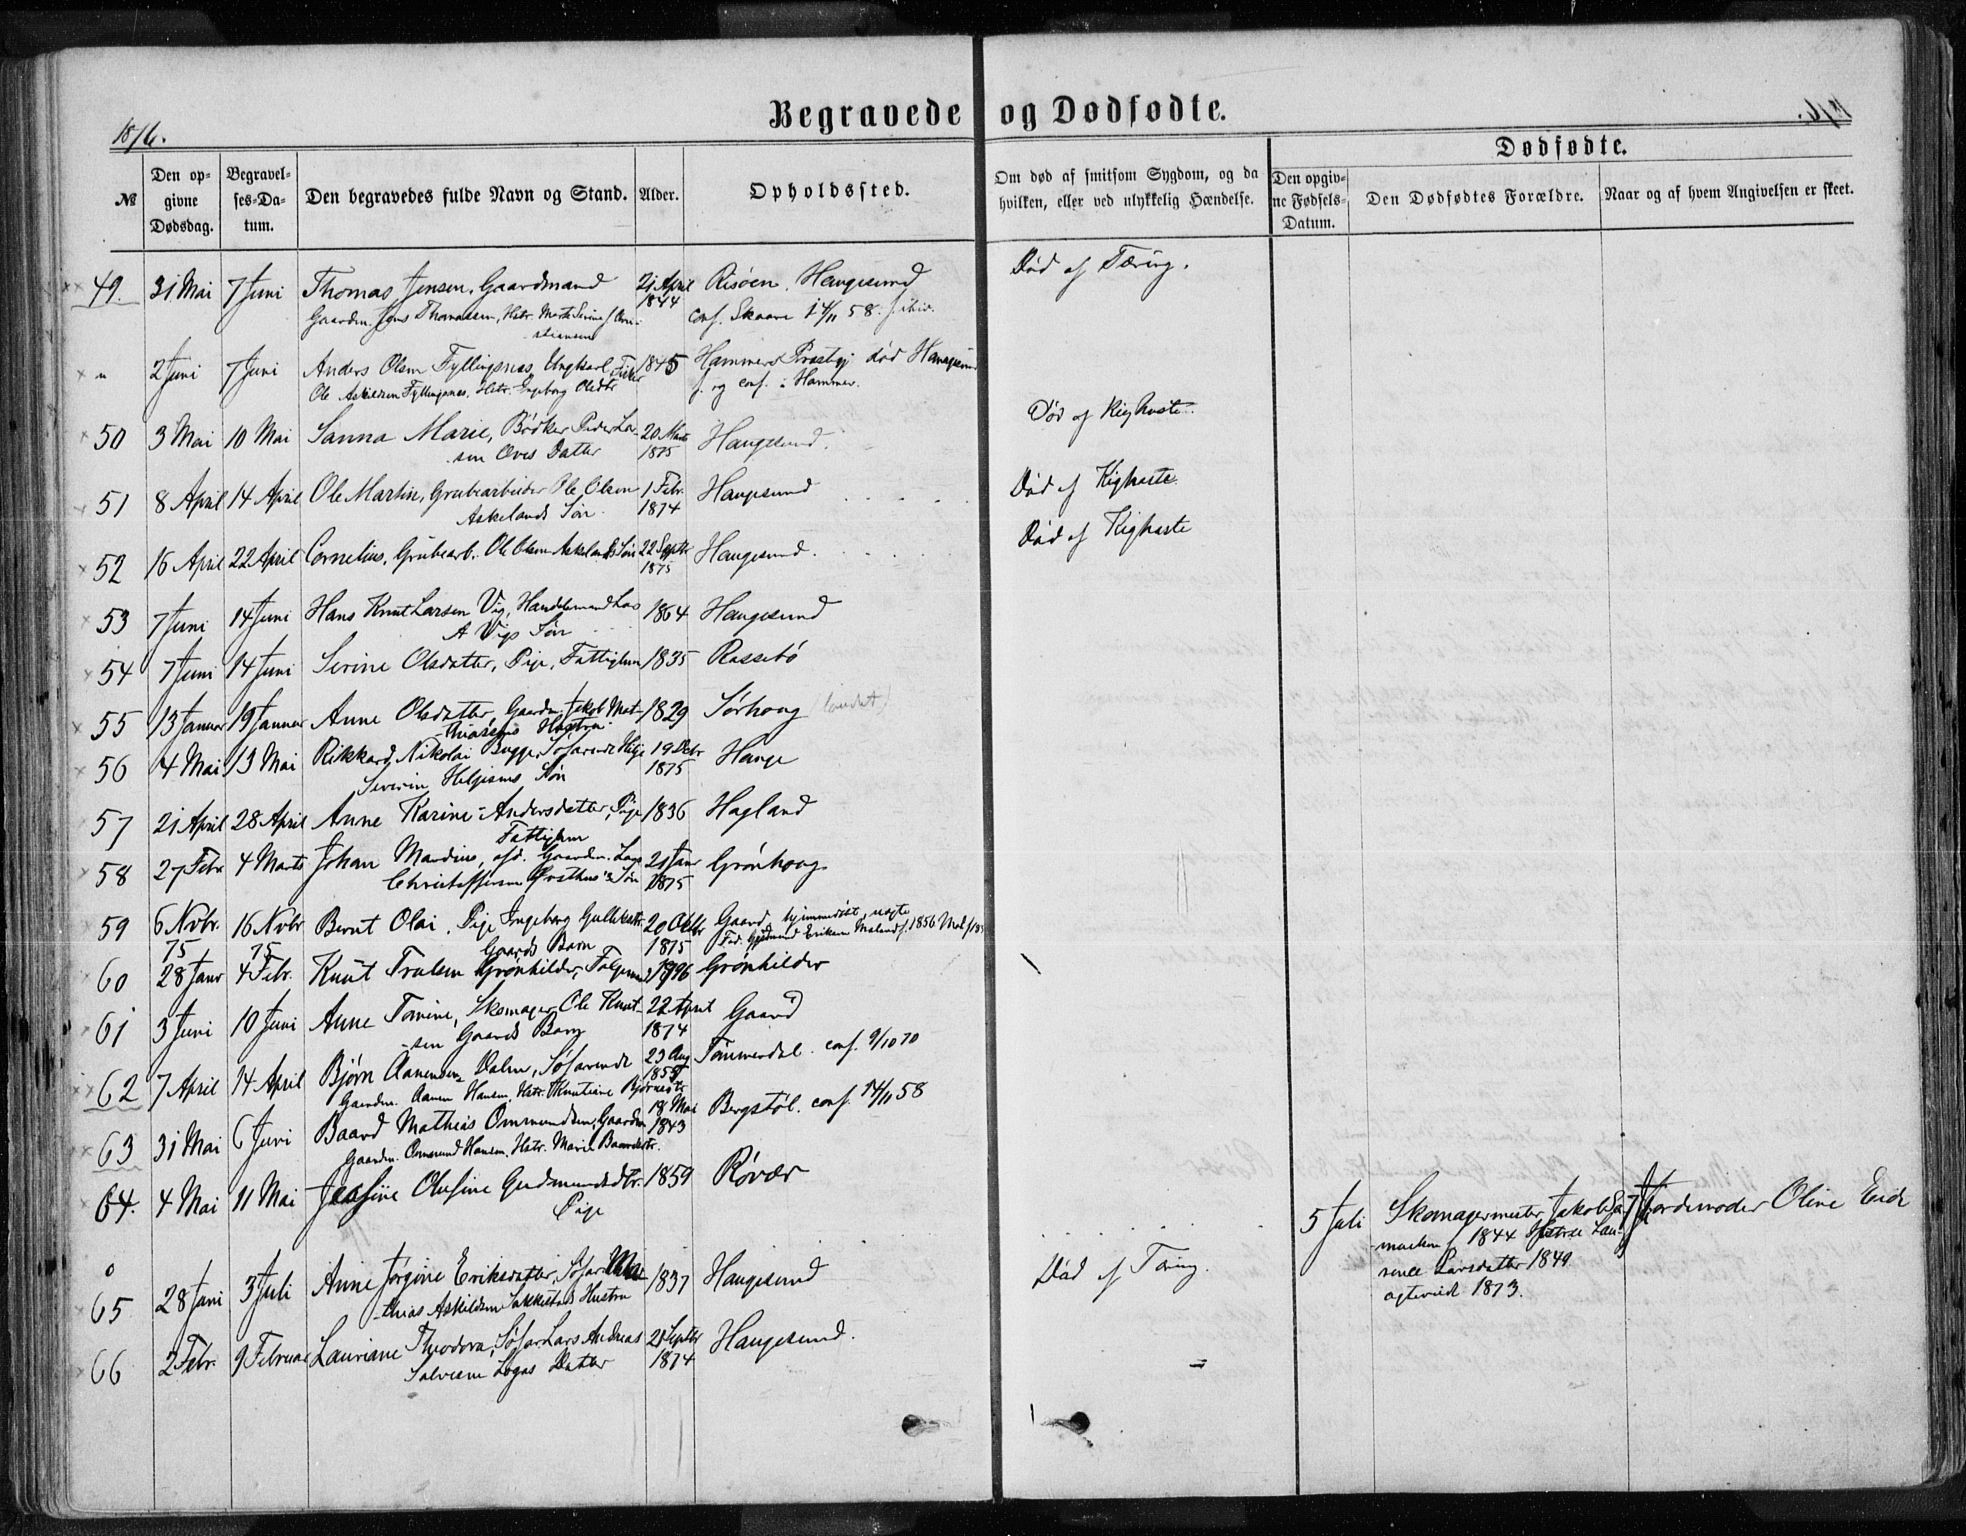 1876.
Begravede og Dødfødte.
1876.
Dødfødte.
№
Den opgivne Dødsdag.
Begravelses-Datum.
Den begravedes fulde Navn og Stand.
Alder.
Opholdssted.
Om død af smitsom Sygdom, og da hvilken, eller ved ulykkelig Hændelse.
Den opgivne Fødsels-Datum.
Den Dødfødtes Forældre.
Naar og af hvem Angivelsen er skeet.
49. 31 Mai 7 Juni Thomas Jensen, Gaardmand 21 April Risøen, Haugesund Død af Tæring.
Gaardm. Jens Thomassen, Hstr. Marte Serine 1844 conf. Skaare 14/11 58.
" 2 Juni 7 Juni Anders Olsen Fyllingsnes, Ungkarl Fisker 1845 Hammers Præstgj død Haugesund
Ole Askildsen Fyllingsnes, Hstr. Ingeborg Olsdtr f. og conf. i Hammer.
50 3 Mai 10 Mai Sanna Marie, Bødker Peder La- 20 Marts Haugesund. Død af Kighoste.
sen Øves Datter 1875
51 8 April 14 April Ole Martin, Grubearbeider Ole Olsen 1 Febr. Haugesund Død af Kighoste.
Askelands Søn. 1874
52 16 April 22 April Cornelius, Grubearb. Ole Olsen Askelands Søn 22 Septbr Haugesund. Død af Kighoste
1875
53 7 Juni 14 Juni Hans Knut Larsen Vig, Handelsmand Lars 1864 Haugesund
A Vigs Søn
54 7 Juni 14 Juni Serine Olsdatter, Pige, Fattiglem 1835 Rossebø
55 13 Januar 19 Januar Anne Olsdatter, Gaardm. Jakob Mat- 1829 Sørhoug (landet)
thiasens Hustru
56 4 Mai 13 Mai Rikkard Nikolai Bugge, Søfarende Helje 19 Debr Hauge
Severin Helgesens Søn 1875
57 21 April 28 April Anne Karine Andersdatter, Pige 1836 Hagland
Fattiglem
58 27 Febr 4 Marts Johan Mardius, afd. Gaardm. Lars 21 Janr Grønhoug
Christoffersen Østhus's Søn 1875
59 6 Novbr. 16 Novbr Bernt Olai, Pige Ingeborg Gulleksdtr. 20 Oktbr Gaard, hjemmedøbt, uægte
75 75 Gaards Barn 1875 Fad. Gudmund Eriksen Meland f. 1856
60 28 Janr 4 Febr. Knut Trulsen Grønhilder, Føgemd 1796 Grønhilder
61 3 Juni 10 Juni Anne Tomine, Skomager Ole Knut- 22 April Gaard
sen Gaards Barn 1874
62 7 April 14 April Bjørn Aanensen Dalen, Søfarende 23 Aug Tømmerdal. conf. 9/10 70
Gaardm. Aanen Hansen, Hstr. Knutiane Bjørnsdtr 1855
63 31 Mai 6 Juni Baard Mathias Ommundsen, Gaardm 18 Mai Bergstøl. conf. 14/11 58
Gaardm. Ommund Hansen, Hstr. Marie Baardsdtr. 1843
64. 4 Mai 11 Mai Josefine Olufine Gudmundsdtr. 1859 Røvær
Pige
5 Juli Skomagermester Jakob
f. 1844 Hustru Lau-
rence Larsdatter 1849
ægteviet 1873.
Jordemoder Oline Eide
65 28 Juni 3 Juli Anne Jorgine Eriksdatter, Søfar. Mat- 1837 Haugesund Død af Tæring.
thias Askildsen Sakkestads Hustru
66 2 Febr. 9 Februar Lauriane Theodora, Søfar. Lars Andreas 21 Septbr Haugesund.
Salvesen Logas Datter 1874